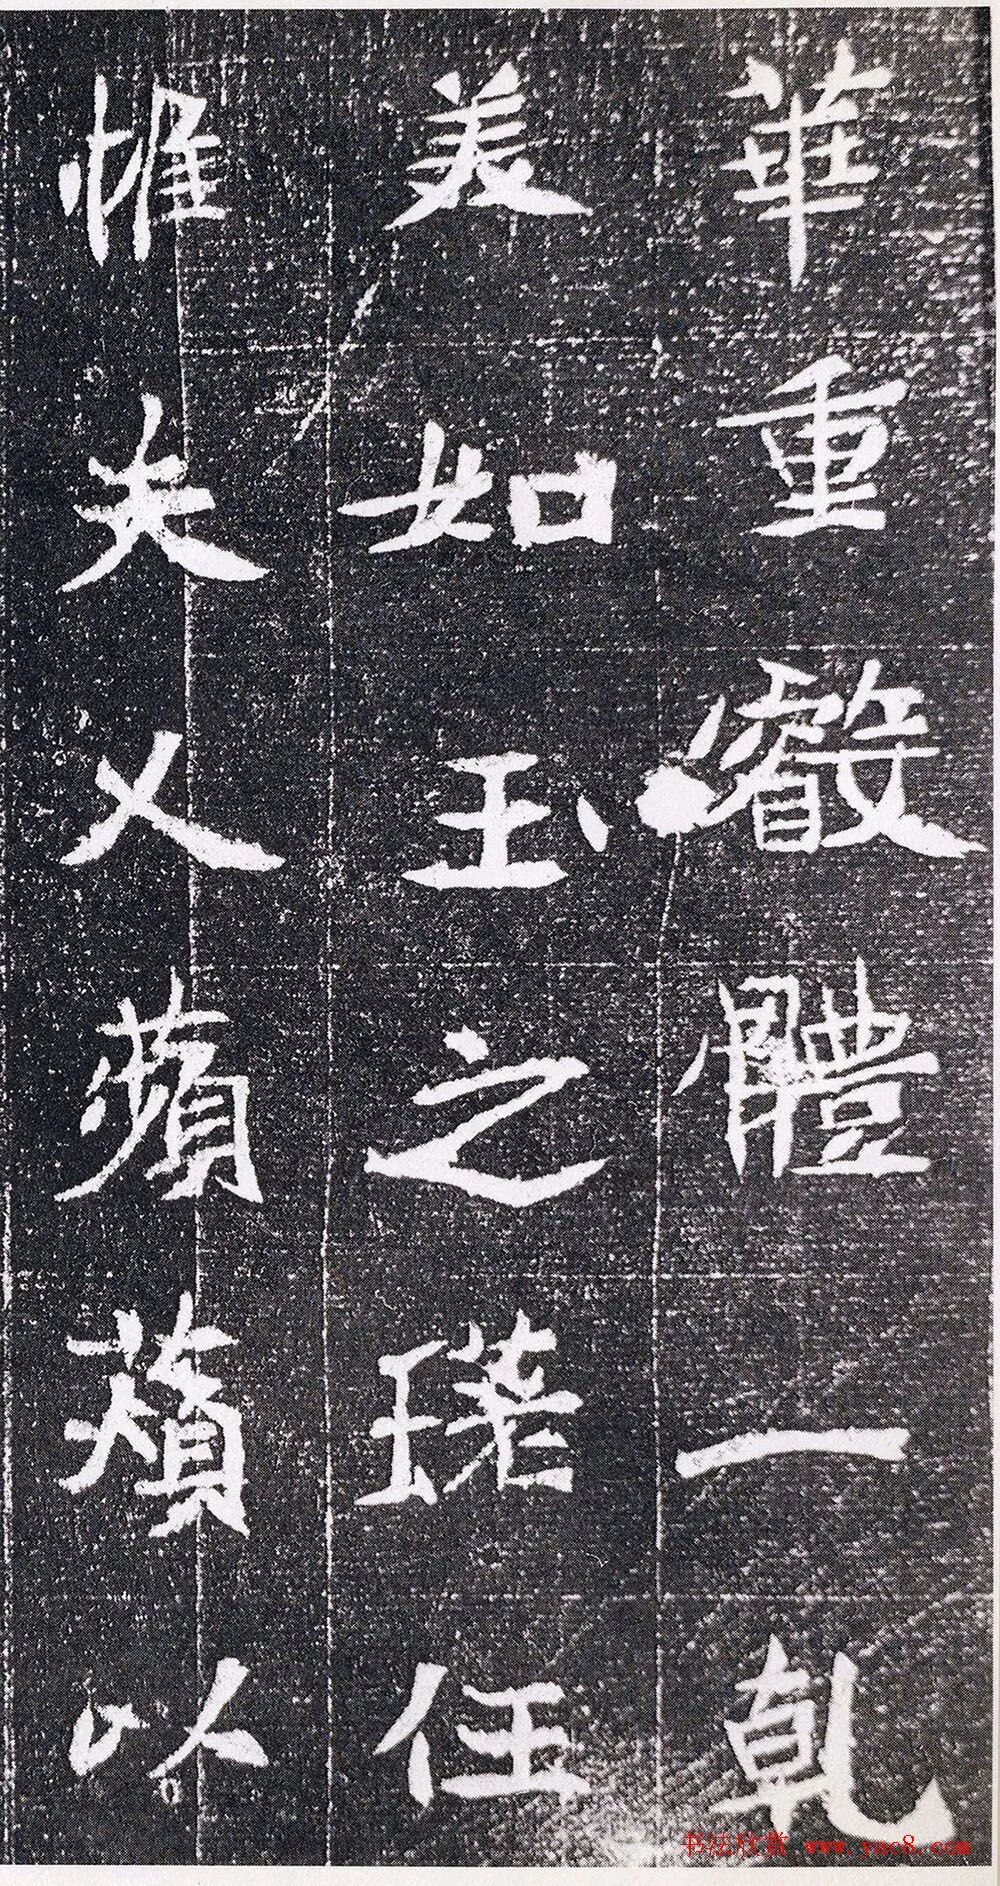 華重叡體一乾
美如玉之任
惟夫乂蘋薠以
书法欣赏 www.yac8.com